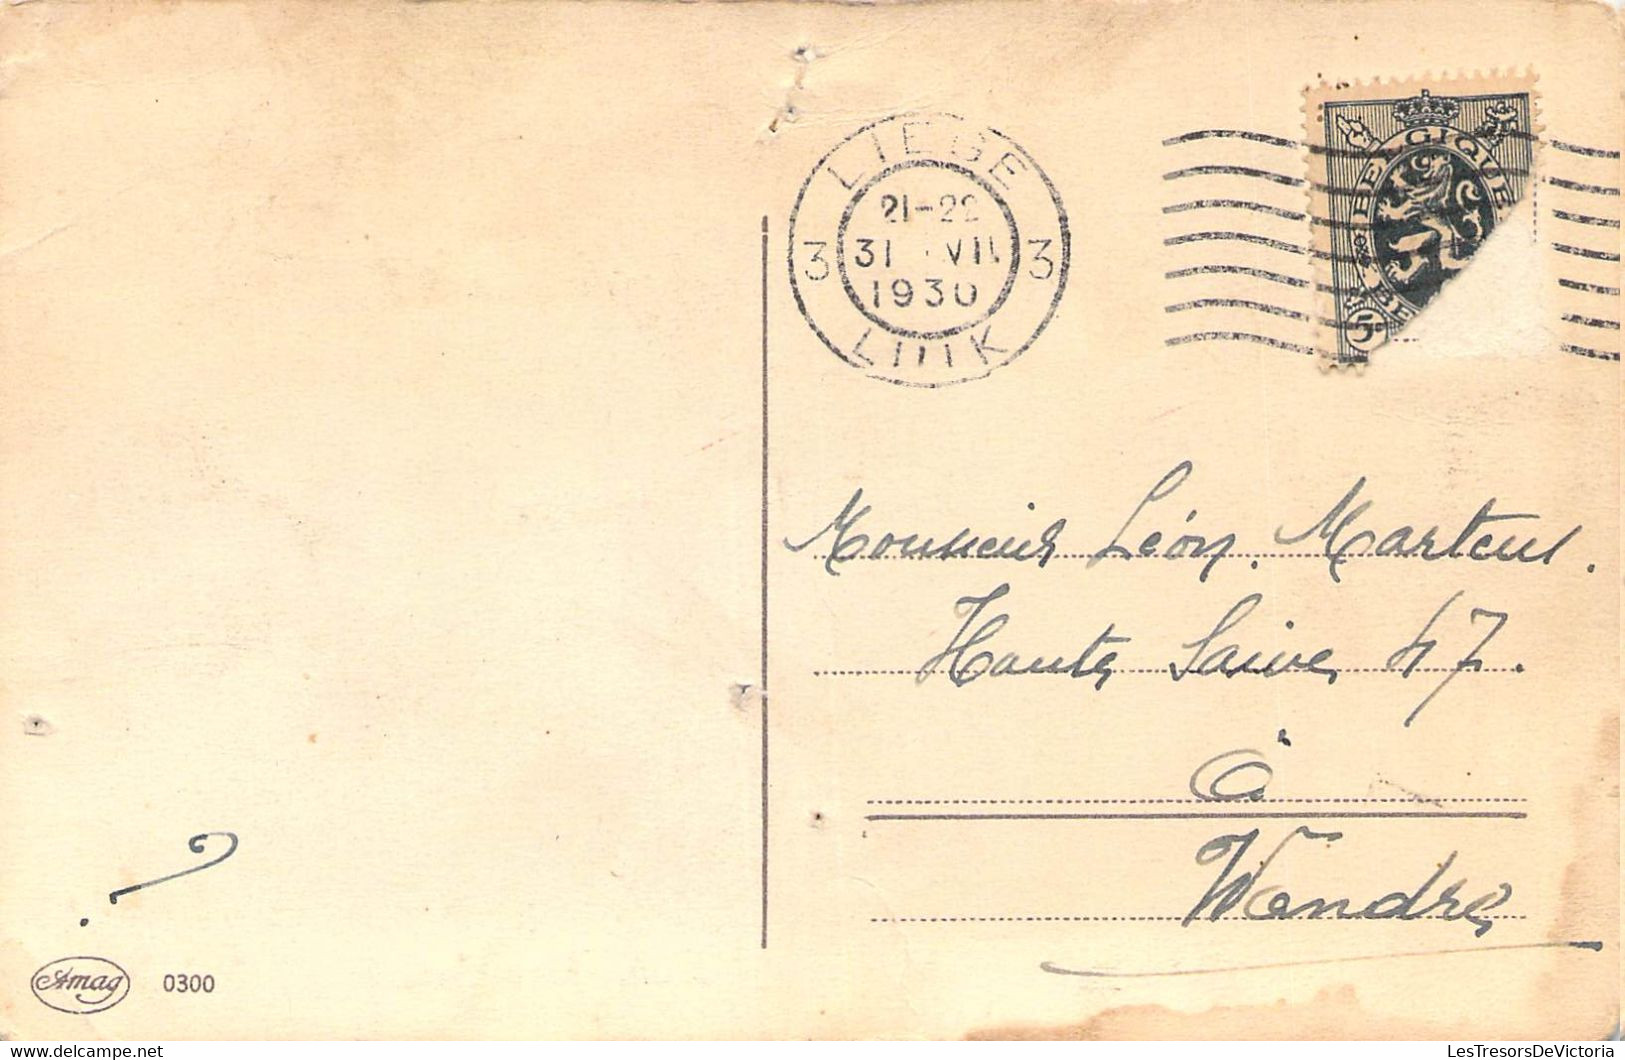 LIEGE
21-22
31 VII
1930
3 3
LUIK
BELGIQUE
BE
5c
Monsieur Léon. Marteus.
Haute Saive 47.
à
Wandre
?
Amag 0300
delcampe.net
LesTresorsDeVictoria